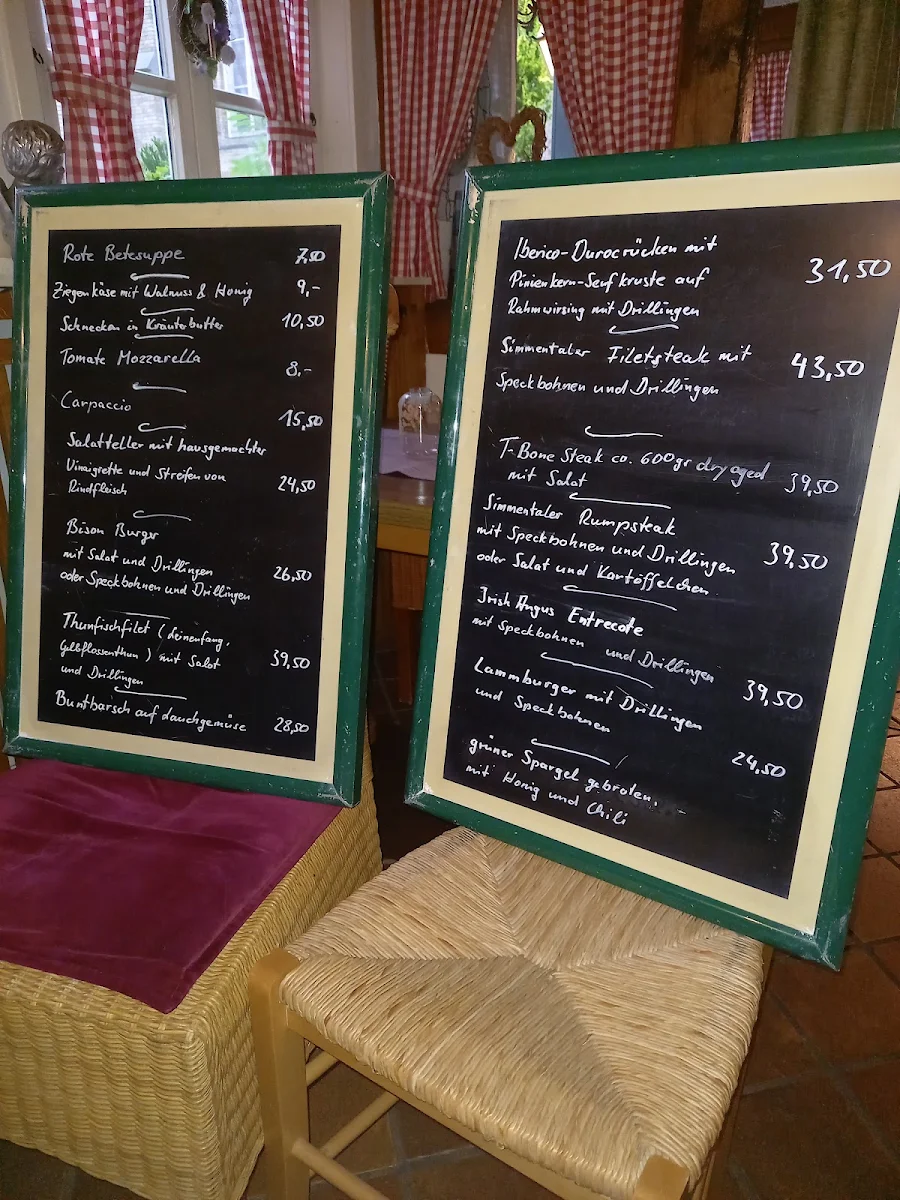 Rote Betesuppe 7,50
Ziegenkäse mit Walnuss & Honig 9,-
Schnecken in Kräuterbutter 10,50
Tomate Mozzarella 8,-
Carpaccio 15,50
Salatteller mit hausgemachter
Vinaigrette und Streifen von
Rindfleisch 24,50
Bison Burger
mit Salat und Drillingen 26,50
oder Speckbohnen und Drillingen
Thunfischfilet (Leinenfang,
Gelbflossenthun) mit Salat 39,50
und Drillingen
Buntbarsch auf Lauchgemüse 28,50
Iberico-Durocrücken mit
Pinienkern-Senfkruste auf 31,50
Rahmwirsing mit Drillingen
Simmentaler Filetsteak mit 43,50
Speckbohnen und Drillingen
T-Bone Steak ca. 600gr dry aged 39,50
mit Salat
Simmentaler Rumpsteak
mit Speckbohnen und Drillingen 39,50
oder Salat und Kartöffelchen
Irish Angus Entrecote
mit Speckbohnen und Drillingen 39,50
Lammburger mit Drillingen
und Speckbohnen 24,50
grüner Spargel gebraten,
mit Honig und Chili